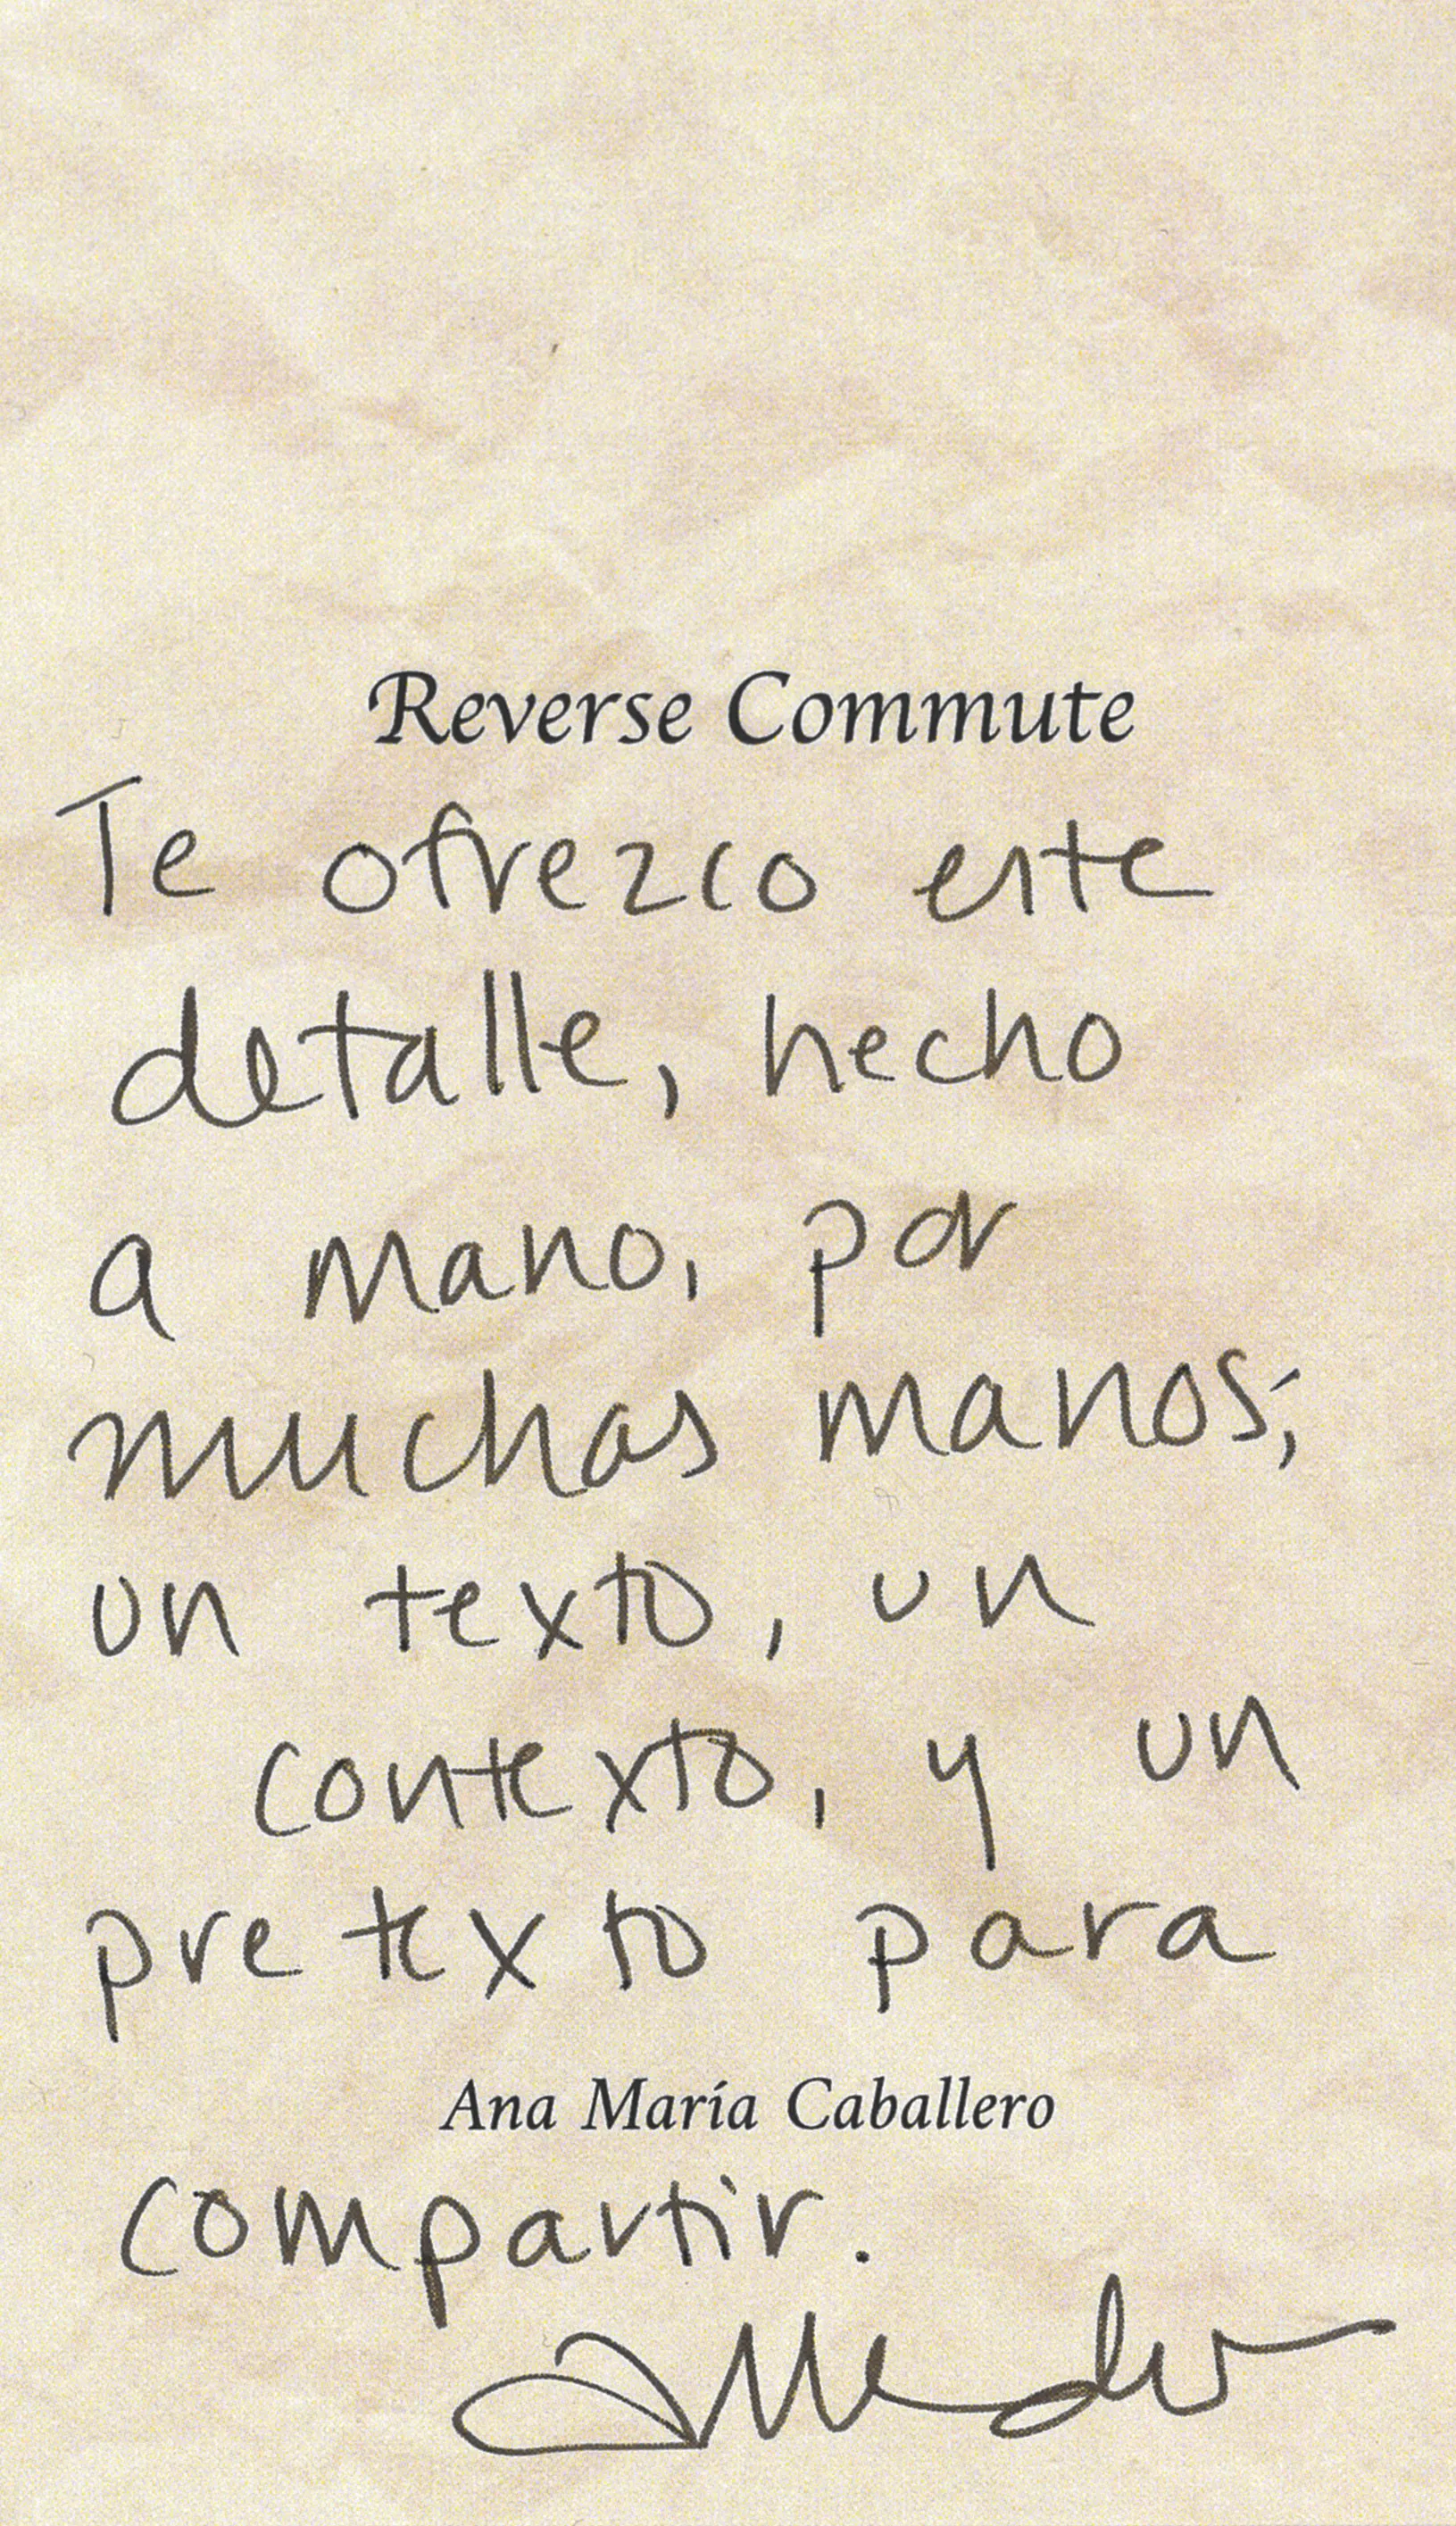 Reverse Commute
Te ofrezco este
detalle, hecho
a mano, por
muchas manos;
un texto, un
contexto, y un
pretexto para
Ana María Caballero
compartir.